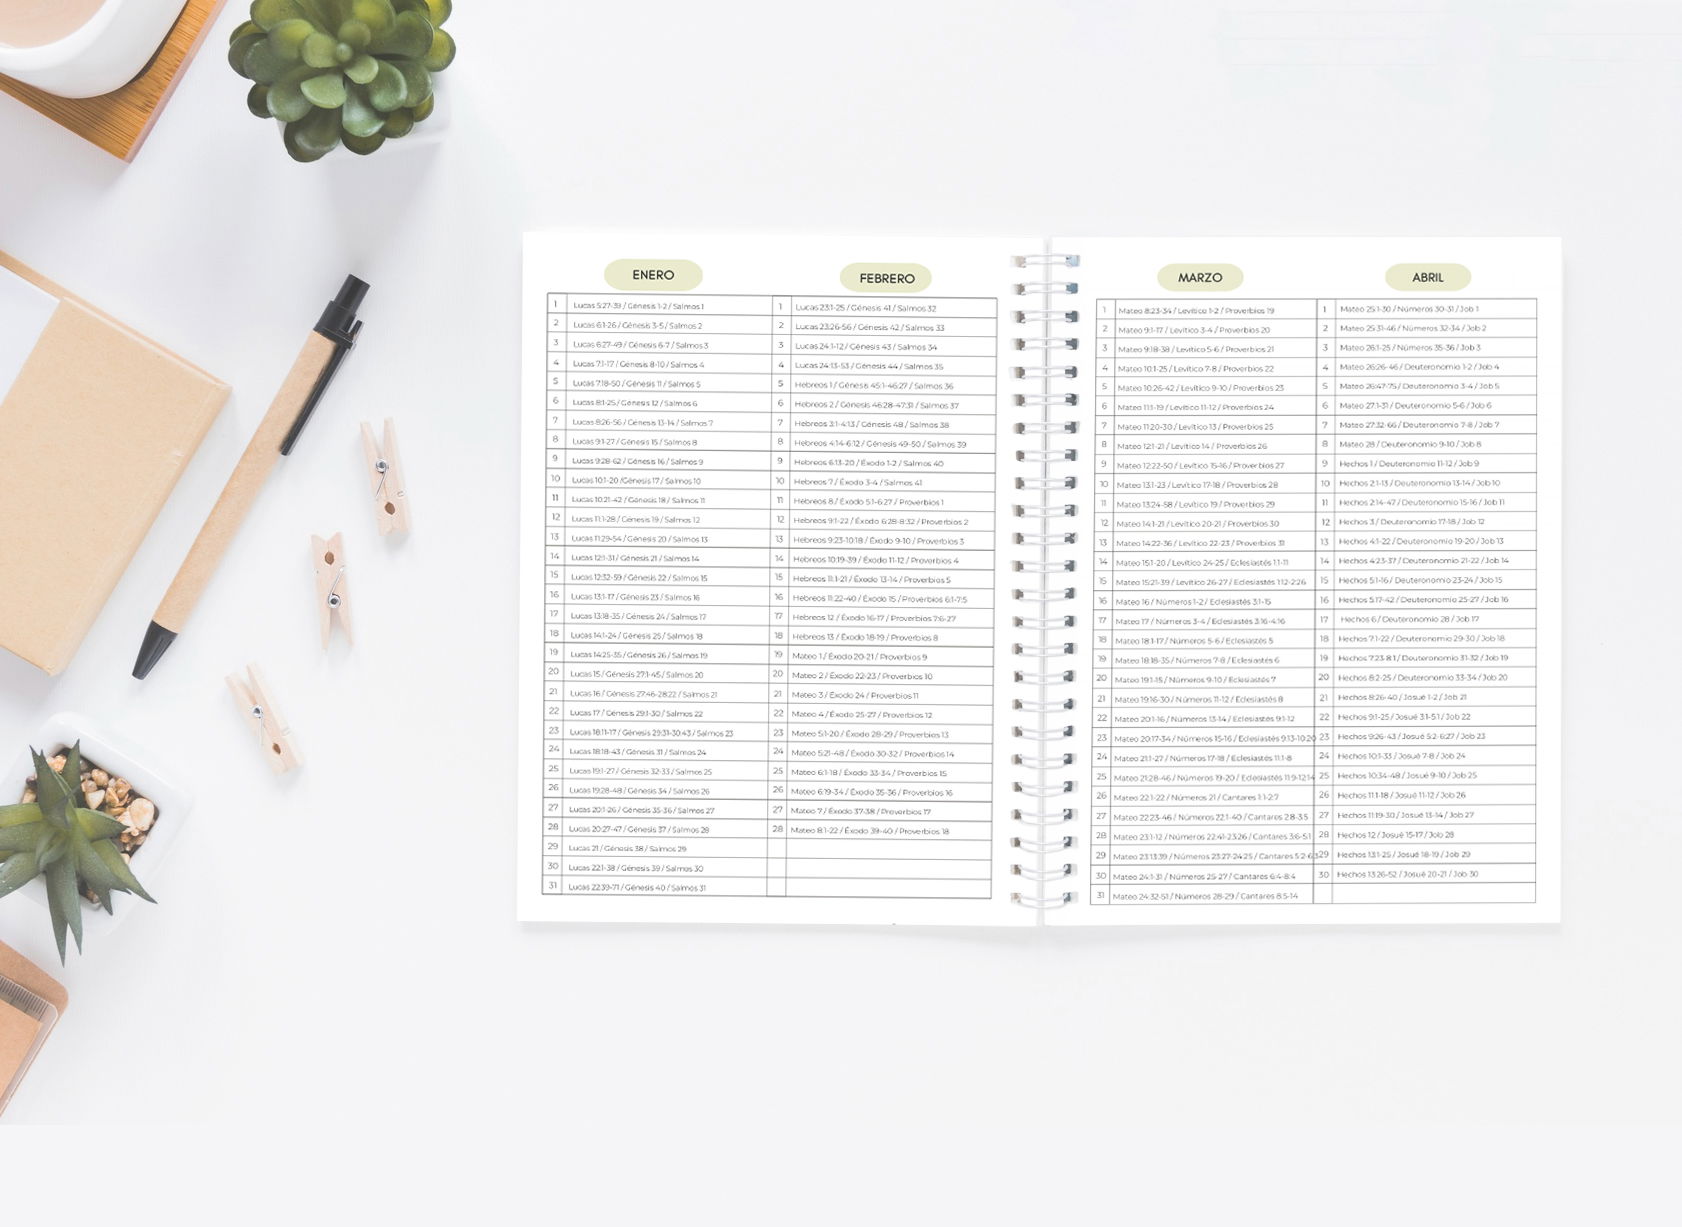 ENERO
1 Lucas 5:27-39 / Génesis 1-2 / Salmos 1
2 Lucas 6:1-26 / Génesis 3-5 / Salmos 2
3 Lucas 6:27-49 / Génesis 6-7 / Salmos 3
4 Lucas 7:1-17 / Génesis 8-10 / Salmos 4
5 Lucas 7:18-50 / Génesis 11 / Salmos 5
6 Lucas 8:1-25 / Génesis 12 / Salmos 6
7 Lucas 8:26-56 / Génesis 13-14 / Salmos 7
8 Lucas 9:1-27 / Génesis 15 / Salmos 8
9 Lucas 9:28-62 / Génesis 16 / Salmos 9
10 Lucas 10:1-20 / Génesis 17 / Salmos 10
11 Lucas 10:21-42 / Génesis 18 / Salmos 11
12 Lucas 11:1-28 / Génesis 19 / Salmos 12
13 Lucas 11:29-54 / Génesis 20 / Salmos 13
14 Lucas 12:1-31 / Génesis 21 / Salmos 14
15 Lucas 12:32-59 / Génesis 22 / Salmos 15
16 Lucas 13:1-17 / Génesis 23 / Salmos 16
17 Lucas 13:18-35 / Génesis 24 / Salmos 17
18 Lucas 14:1-24 / Génesis 25 / Salmos 18
19 Lucas 14:25-35 / Génesis 26 / Salmos 19
20 Lucas 15 / Génesis 27:1-45 / Salmos 20
21 Lucas 16 / Génesis 27:46-28:22 / Salmos 21
22 Lucas 17 / Génesis 29:1-30 / Salmos 22
23 Lucas 18:1-17 / Génesis 29:31-30:43 / Salmos 23
24 Lucas 18:18-43 / Génesis 31 / Salmos 24
25 Lucas 19:1-27 / Génesis 32-33 / Salmos 25
26 Lucas 19:28-48 / Génesis 34 / Salmos 26
27 Lucas 20:1-26 / Génesis 35-36 / Salmos 27
28 Lucas 20:27-47 / Génesis 37 / Salmos 28
29 Lucas 21 / Génesis 38 / Salmos 29
30 Lucas 22:1-38 / Génesis 39 / Salmos 30
31 Lucas 22:39-71 / Génesis 40 / Salmos 31
FEBRERO
1 Lucas 23:1-25 / Génesis 41 / Salmos 32
2 Lucas 23:26-56 / Génesis 42 / Salmos 33
3 Lucas 24:1-12 / Génesis 43 / Salmos 34
4 Lucas 24:13-53 / Génesis 44 / Salmos 35
5 Hebreos 1 / Génesis 45:1-46:27 / Salmos 36
6 Hebreos 2 / Génesis 46:28-47:31 / Salmos 37
7 Hebreos 3:1-4:13 / Génesis 48 / Salmos 38
8 Hebreos 4:14-6:12 / Génesis 49-50 / Salmos 39
9 Hebreos 6:13-20 / Éxodo 1-2 / Salmos 40
10 Hebreos 7 / Éxodo 3-4 / Salmos 41
11 Hebreos 8 / Éxodo 5:1-6:27 / Proverbios 1
12 Hebreos 9:1-22 / Éxodo 6:28-8:32 / Proverbios 2
13 Hebreos 9:23-10:18 / Éxodo 9-10 / Proverbios 3
14 Hebreos 10:19-39 / Éxodo 11-12 / Proverbios 4
15 Hebreos 11:1-21 / Éxodo 13-14 / Proverbios 5
16 Hebreos 11:22-40 / Éxodo 15 / Proverbios 6:1-7:5
17 Hebreos 12 / Éxodo 16-17 / Proverbios 7:6-27
18 Hebreos 13 / Éxodo 18-19 / Proverbios 8
19 Mateo 1 / Éxodo 20-21 / Proverbios 9
20 Mateo 2 / Éxodo 22-23 / Proverbios 10
21 Mateo 3 / Éxodo 24 / Proverbios 11
22 Mateo 4 / Éxodo 25-27 / Proverbios 12
23 Mateo 5:1-20 / Éxodo 28-29 / Proverbios 13
24 Mateo 5:21-48 / Éxodo 30-32 / Proverbios 14
25 Mateo 6:1-18 / Éxodo 33-34 / Proverbios 15
26 Mateo 6:19-34 / Éxodo 35-36 / Proverbios 16
27 Mateo 7 / Éxodo 37-38 / Proverbios 17
28 Mateo 8:1-22 / Éxodo 39-40 / Proverbios 18
MARZO
1 Mateo 8:23-34 / Levítico 1-2 / Proverbios 19
2 Mateo 9:1-17 / Levítico 3-4 / Proverbios 20
3 Mateo 9:18-38 / Levítico 5-6 / Proverbios 21
4 Mateo 10:1-25 / Levítico 7-8 / Proverbios 22
5 Mateo 10:26-42 / Levítico 9-10 / Proverbios 23
6 Mateo 11:1-19 / Levítico 11-12 / Proverbios 24
7 Mateo 11:20-30 / Levítico 13 / Proverbios 25
8 Mateo 12:1-21 / Levítico 14 / Proverbios 26
9 Mateo 12:22-50 / Levítico 15-16 / Proverbios 27
10 Mateo 13:1-23 / Levítico 17-18 / Proverbios 28
11 Mateo 13:24-58 / Levítico 19 / Proverbios 29
12 Mateo 14:1-21 / Levítico 20-21 / Proverbios 30
13 Mateo 14:22-36 / Levítico 22-23 / Proverbios 31
14 Mateo 15:1-20 / Levítico 24-25 / Eclesiastés 1:1-11
15 Mateo 15:21-39 / Levítico 26-27 / Eclesiastés 1:12-2:26
16 Mateo 16 / Números 1-2 / Eclesiastés 3:1-15
17 Mateo 17 / Números 3-4 / Eclesiastés 3:16-4:16
18 Mateo 18:1-17 / Números 5-6 / Eclesiastés 5
19 Mateo 18:18-35 / Números 7-8 / Eclesiastés 6
20 Mateo 19:1-15 / Números 9-10 / Eclesiastés 7
21 Mateo 19:16-30 / Números 11-12 / Eclesiastés 8
22 Mateo 20:1-16 / Números 13-14 / Eclesiastés 9:1-12
23 Mateo 20:17-34 / Números 15-16 / Eclesiastés 9:13-10:20
24 Mateo 21:1-27 / Números 17-18 / Eclesiastés 11:1-8
25 Mateo 21:28-46 / Números 19-20 / Eclesiastés 11:9-12:14
26 Mateo 22:1-22 / Números 21 / Cantares 1:1-2:7
27 Mateo 22:23-46 / Números 22:1-40 / Cantares 2:8-3:5
28 Mateo 23:1-12 / Números 22:41-23:26 / Cantares 3:6-5:1
29 Mateo 23:13:39 / Números 23:27-24:25 / Cantares 5:2-6:3
30 Mateo 24:1-31 / Números 25-27 / Cantares 6:4-8:4
31 Mateo 24:32-51 / Números 28-29 / Cantares 8:5-14
ABRIL
1 Mateo 25:1-30 / Números 30-31 / Job 1
2 Mateo 25:31-46 / Números 32-34 / Job 2
3 Mateo 26:1-25 / Números 35-36 / Job 3
4 Mateo 26:26-46 / Deuteronomio 1-2 / Job 4
5 Mateo 26:47-75 / Deuteronomio 3-4 / Job 5
6 Mateo 27:1-31 / Deuteronomio 5-6 / Job 6
7 Mateo 27:32-66 / Deuteronomio 7-8 / Job 7
8 Mateo 28 / Deuteronomio 9-10 / Job 8
9 Hechos 1 / Deuteronomio 11-12 / Job 9
10 Hechos 2:1-13 / Deuteronomio 13-14 / Job 10
11 Hechos 2:14-47 / Deuteronomio 15-16 / Job 11
12 Hechos 3 / Deuteronomio 17-18 / Job 12
13 Hechos 4:1-22 / Deuteronomio 19-20 / Job 13
14 Hechos 4:23-37 / Deuteronomio 21-22 / Job 14
15 Hechos 5:1-16 / Deuteronomio 23-24 / Job 15
16 Hechos 5:17-42 / Deuteronomio 25-27 / Job 16
17 Hechos 6 / Deuteronomio 28 / Job 17
18 Hechos 7:1-22 / Deuteronomio 29-30 / Job 18
19 Hechos 7:23-8:1 / Deuteronomio 31-32 / Job 19
20 Hechos 8:2-25 / Deuteronomio 33-34 / Job 20
21 Hechos 8:26-40 / Josué 1-2 / Job 21
22 Hechos 9:1-25 / Josué 3:1-5:1 / Job 22
23 Hechos 9:26-43 / Josué 5:2-6:27 / Job 23
24 Hechos 10:1-33 / Josué 7-8 / Job 24
25 Hechos 10:34-48 / Josué 9-10 / Job 25
26 Hechos 11:1-18 / Josué 11-12 / Job 26
27 Hechos 11:19-30 / Josué 13-14 / Job 27
28 Hechos 12 / Josué 15-17 / Job 28
29 Hechos 13:1-25 / Josué 18-19 / Job 29
30 Hechos 13:26-52 / Josué 20-21 / Job 30